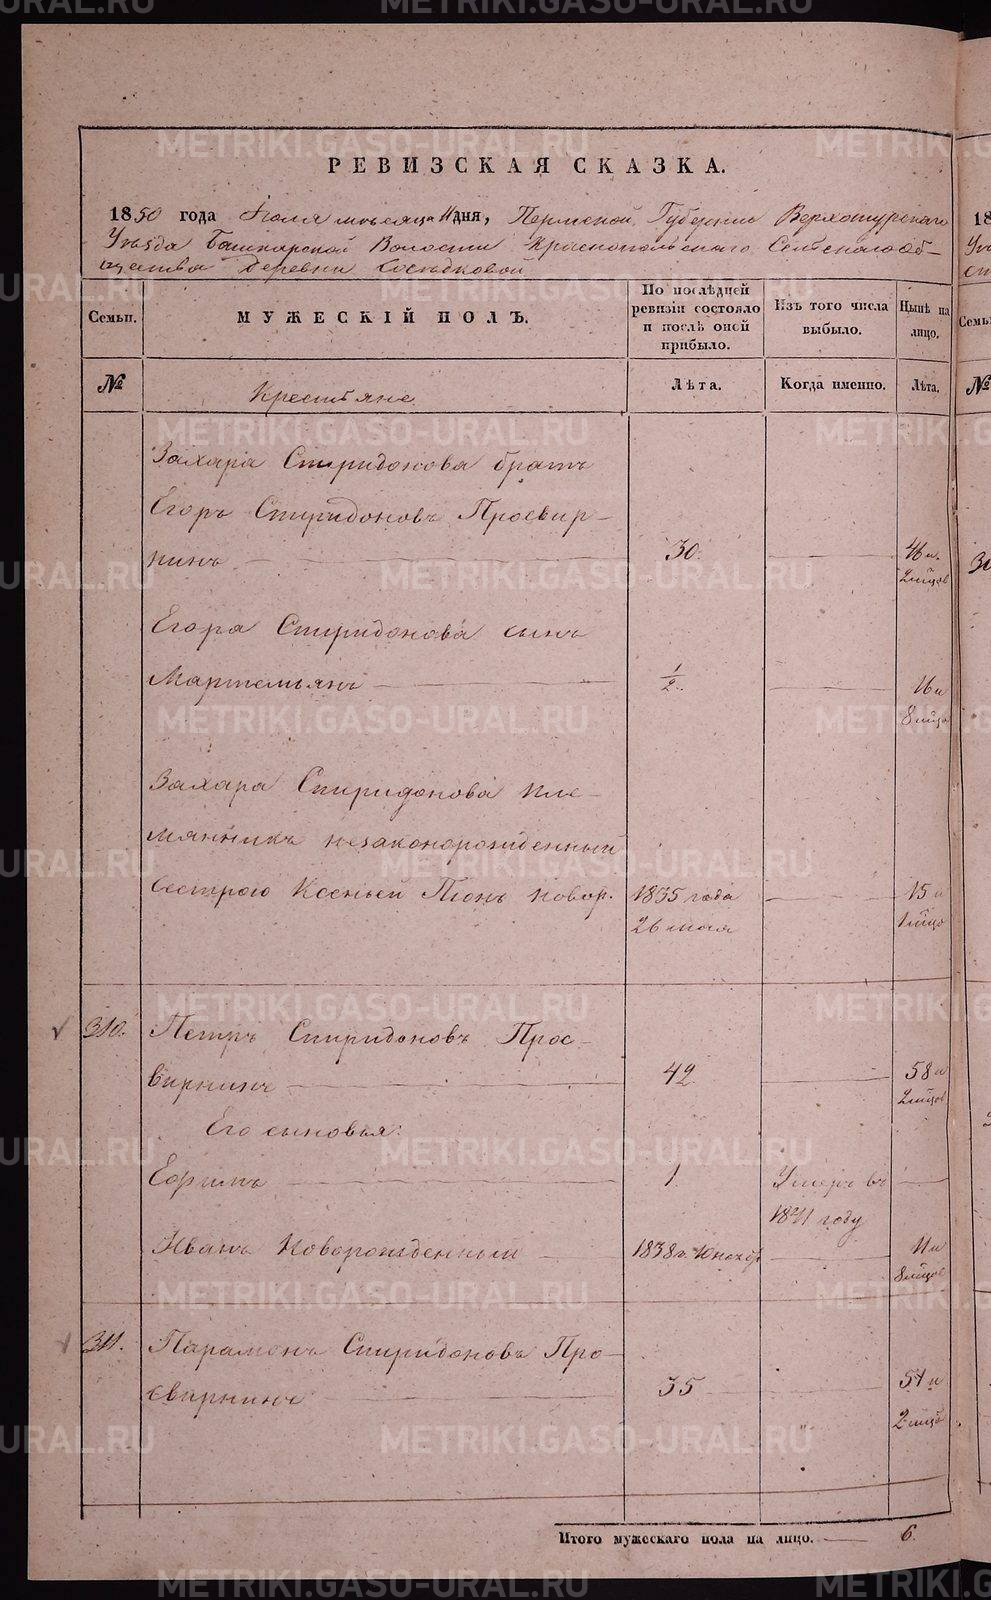 РЕВИЗСКАЯ СКАЗКА.
1850 года Іюля мѣсяца 11 дня, Пермской Губерніи Верхотурскаго
Уѣзда Башкарской Волости Краснопольскаго Сельскаго Об-
щества Деревни Сосѣдковой
Семьи.
МУЖЕСКІЙ ПОЛЪ.
По послѣдней ревизіи состояло и послѣ оной прибыло.
Изъ того числа выбыло.
Нынѣ на лицо.
№
Крестьяне.
Лѣта.
Когда именно.
Лѣта.
Захара Спиридонова братъ
Егоръ Спиридоновъ Просвир-
нинъ 30. 46 и
2 мѣсяцов
Егора Спиридонова сынъ
Мартемьянъ 1/2. 16 и
8 мѣсяцо
Захара Спиридонова пле-
мянникъ незаконорожденный
Сестрою Ксеньей Піонъ новор. 1835 года 15 и
26 мая 1 мѣсяцо
310. Петръ Спиридоновъ Прос-
вирнинъ 42 58 и
2 мѣсяцов
Его сыновья:
Ефимъ 1 Умеръ въ
1841 году
Иванъ Новорожденный 1838 г. 10 нояб. 11 и
8 мѣсяцов
311. Парамонъ Спиридоновъ Про-
свирнинъ 35 51 и
2 мѣсяцо
Итого мужескаго пола на лицо. 6
METRIKI.GASO-URAL.RU